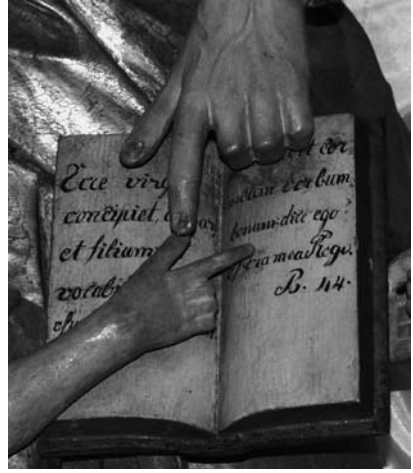 Ecce virg
concipiet, par
et filium
vocabi
cor
meum verbum
bonum: dico ego
opera mea Regi.
Ps. 44.